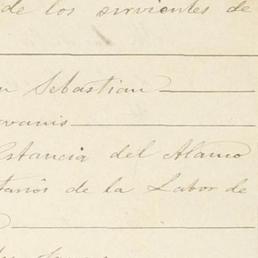 de los sirvientes de
n Sebastian
vanis
Estancia del Alamo
tanos de la Labor de